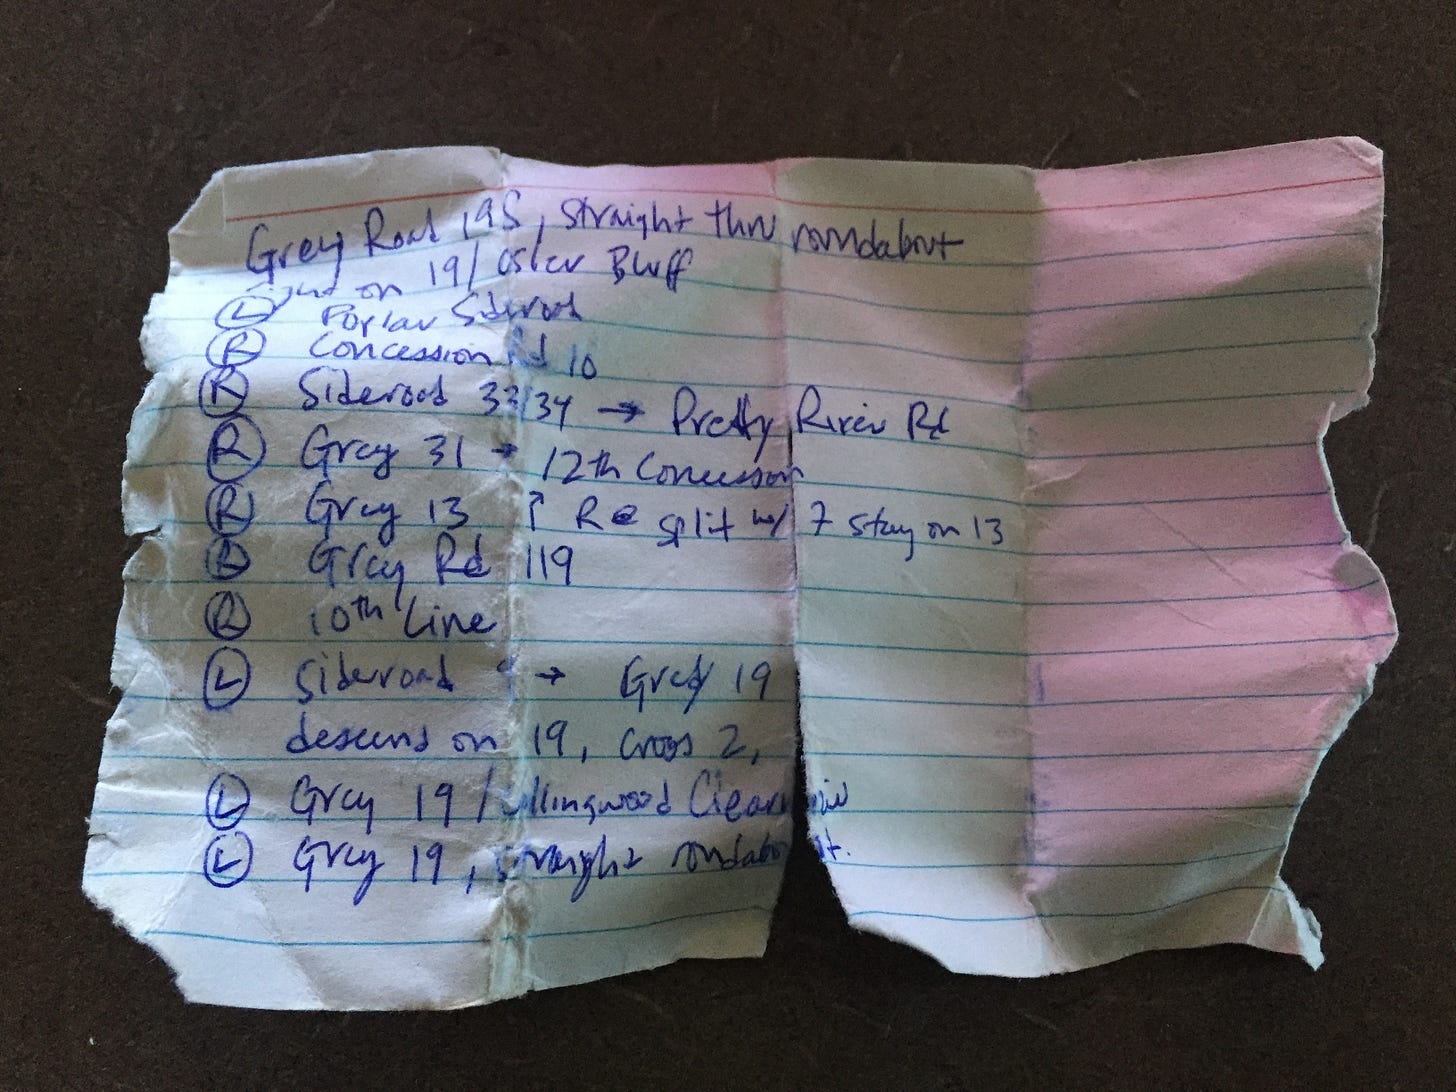 Grey Road 19S, straight thru roundabout
on 19/ Osler Bluff
L Poplar Sideroad
R Concession Rd 10
R Sideroad 33/34 → Pretty River Rd
R Grey 31 → 12th Concession
R Grey 13 ↑ R @ split w/ 7 stay on 13
Grey Rd 119
R 10th Line
L Sideroad → Grey 19
descend on 19, cross 2,
L Grey 19 / Clearview
L Grey 19, straight roundabout.